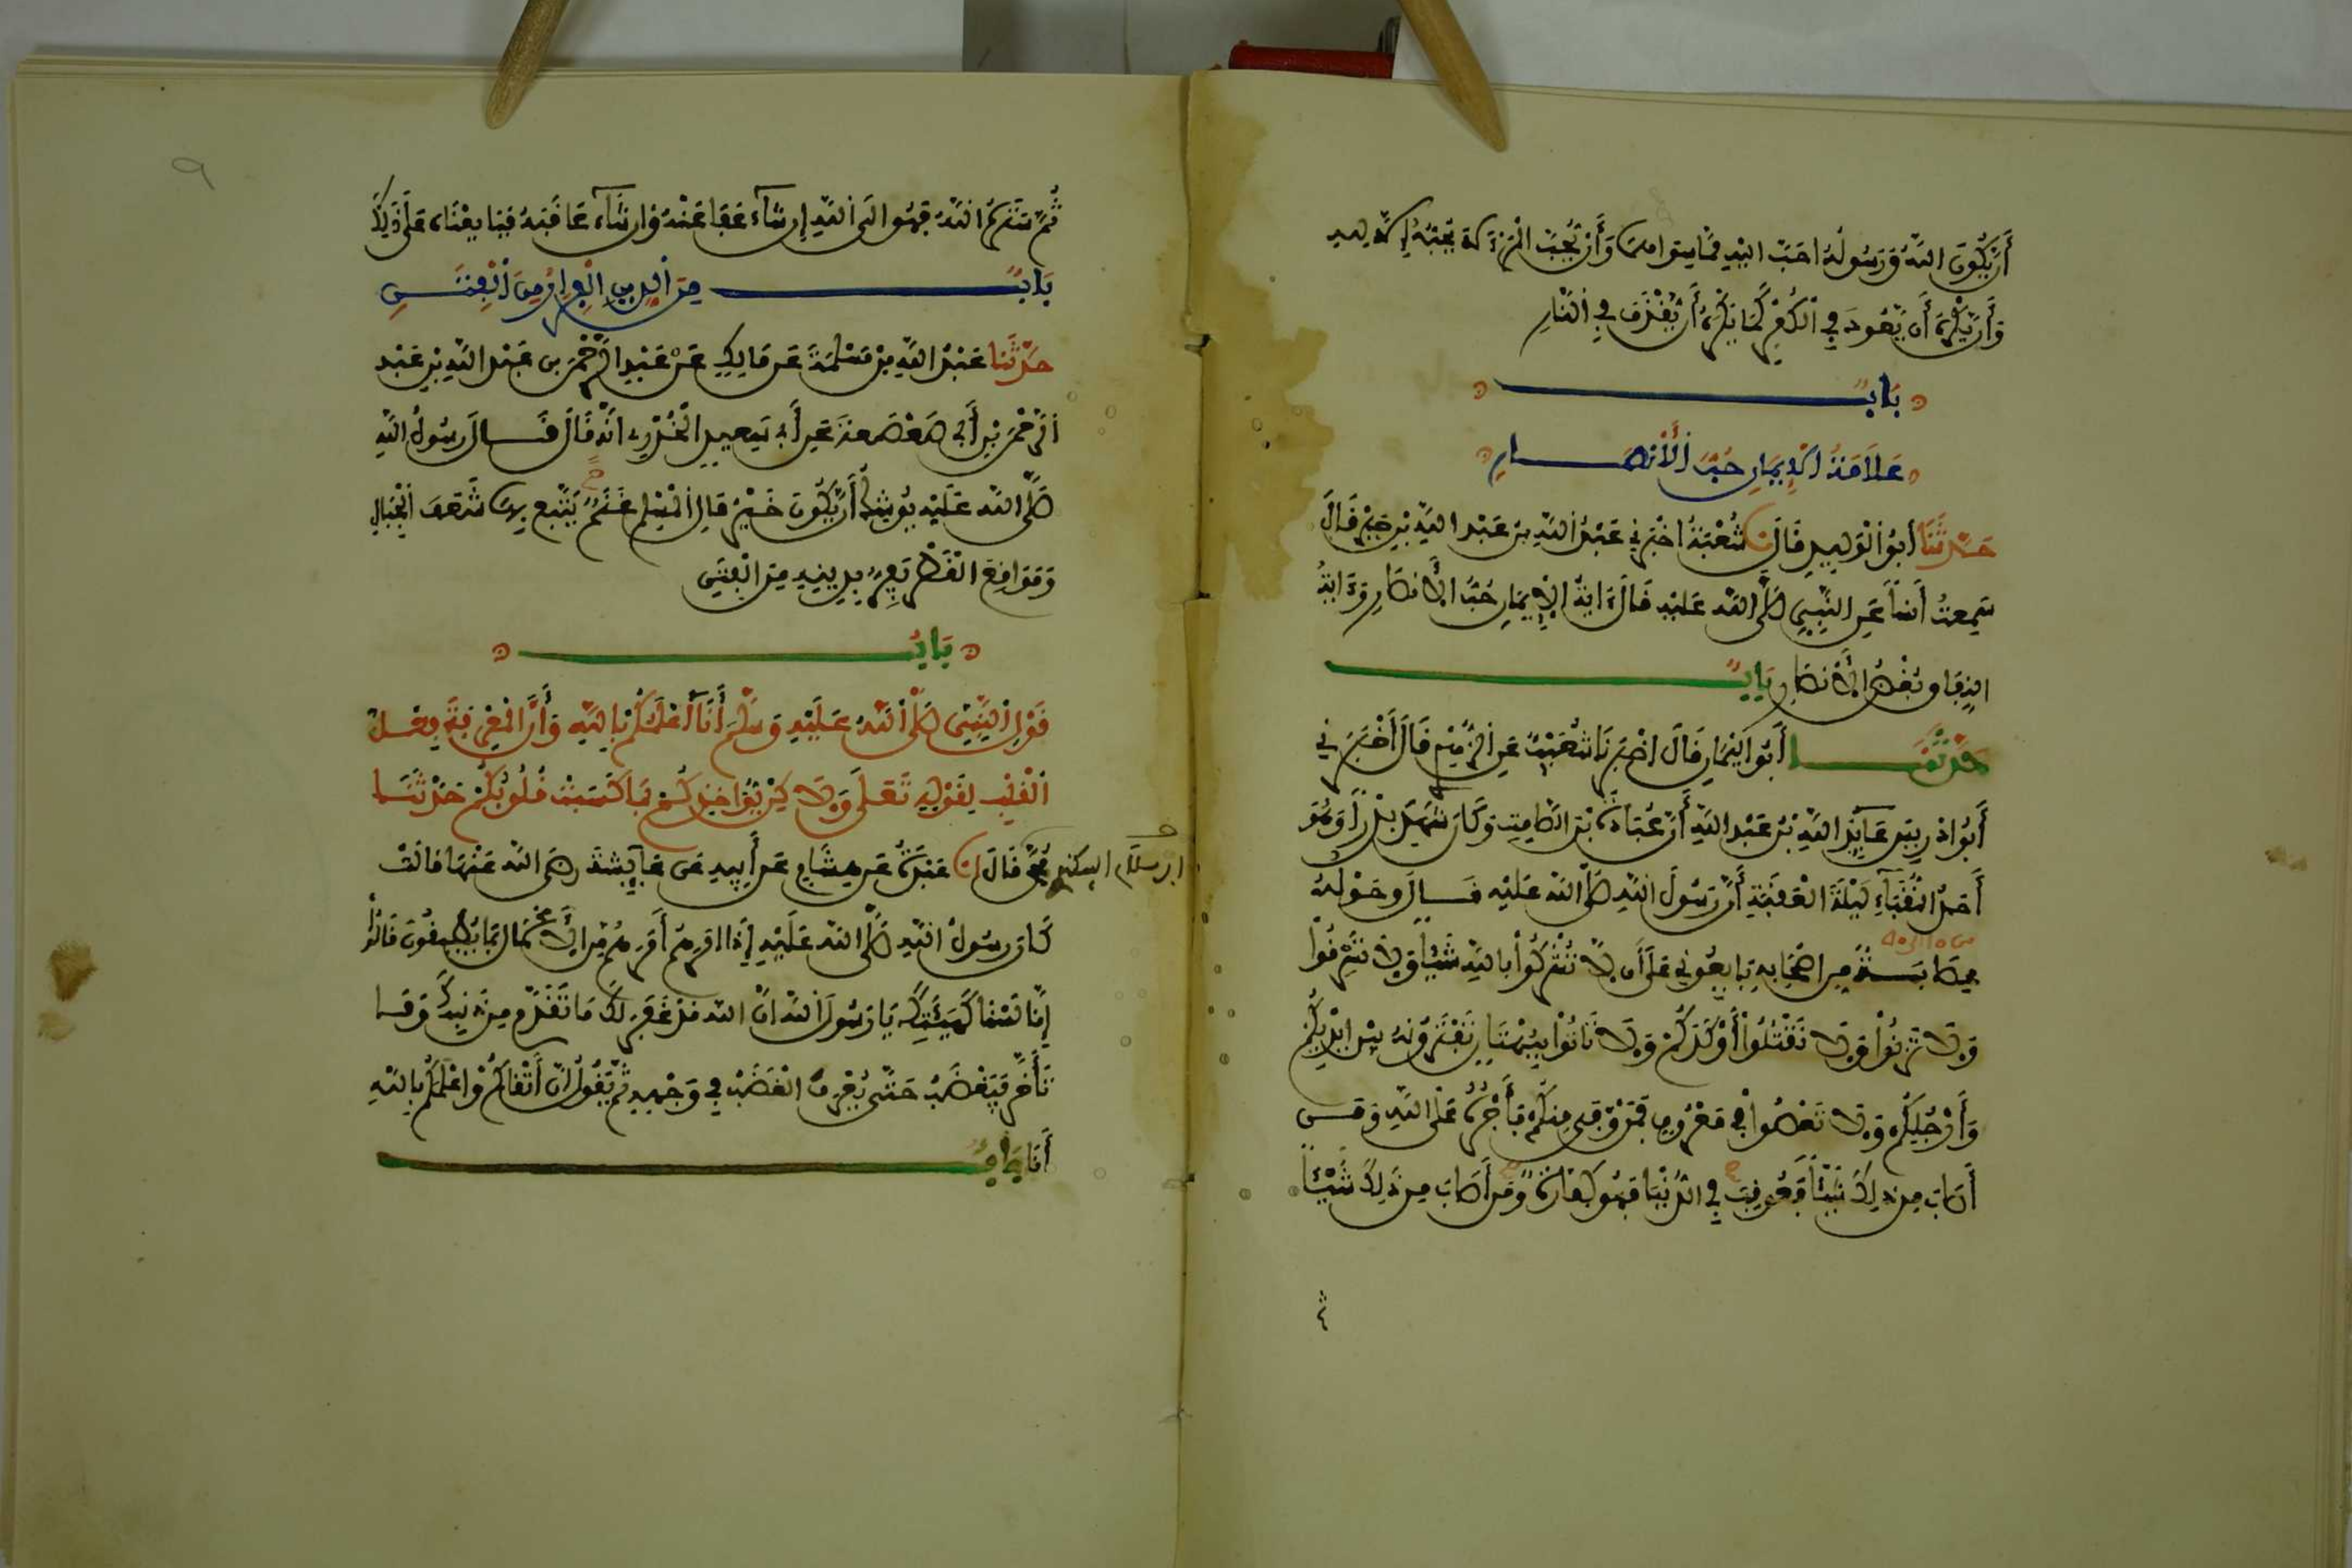 أَن يَّكُونَ اللَّهُ وَرَسُولُهُ أَحَبَّ إِلَيْهِ مِمَّا سِوَاهُمَا وَأَنْ يُّحِبَّ الْمَرْءَ لاَ يُحِبُّهُ إِلاَّ لِلهِ
وَأَن يَّكْرَهَ أَن يَّعُودَ فِي الْكُفْرِ كَمَا يَكْرَهُ أَن يُقْذَفَ فِي النَّارِ
بَابٌ
عَلاَمَةُ الإِيمَانِ حُبُّ الأَنْصَارِ
حَدَّثَنَا أَبُو الْوَلِيدِ قَالَ نا شُعْبَةُ أَخْبَرَنِي عَبْدُ اللَّهِ بنُ عَبْدِ اللَّهِ بْنِ جَبْرٍ قَالَ
سَمِعتُ أَنَساً عَنِ النَّبِيِّ صَلَّى اللَّه عَلَيْهِ قَالَ ءَايَةُ الإِيمَانِ حُبُّ الأَنصَارِ وَءَايَةُ
النِّفَاقِ بُغْضُ الأَنصَارِ بَابٌ
حَدَّثَنَا أَبُو الْيَمَانِ قَالَ أَخْبَرَنَا شُعَيْبٌ عَنِ الزُّهْرِيِّ قَالَ أَخْبَرَنِي
أَبُو إِدْرِيسَ عَايِذُ اللَّهِ بْنُ عَبْدِ اللَّهِ أَنَّ عُبَادَةَ بْنَ الصَّامِتِ وَكَانَ شَهِدَ بَدْراً وَهُوَ
أَحَدُ النُّقَبَاءِ لَيْلَةَ الْعَقَبَةِ أَنَّ رَسُولَ اللَّهِ صَلَّى اللَّه عَلَيْهِ قَالَ وَحَوْلَهُ
عِصَابَةٌ مِنَ اصْحَابِهِ بَايِعُونِي عَلَى أَن لاَّ تُشْرِكُوا بِاللَّهِ شَيْئاً وَلاَ تَسْرِقُوا
وَلاَ تَزْنُوا وَلاَ تَقْتُلُوا أَوْلَادَكُمْ وَلاَ تَاتُوا بِبُهْتَانٍ تَفْتَرُونَهُ بَيْنَ أَيْدِيكُمْ
وَأَرْجُلِكُمْ وَلاَ تَعْصُوا فِي مَعْرُوفٍ فَمَنْ وَفَى مِنكُمْ فَأَجْرُهُ عَلَى اللَّهِ وَمَن
أَصَابَ مِن ذَلِكَ شَيْئاً فَعُوقِبَ فِي الدُّنْيَا فَهُوَ كَفَّارَةٌ وَمَن أَصَابَ مِن ذَلِكَ شَيْئاً
ثُمَّ سَتَرَهُ اللَّهُ فَهُوَ إِلَى اللَّهِ إِن شَاءَ عَفَا عَنْهُ وَإِن شَاءَ عَاقَبَهُ فَبَايَعْنَاهُ عَلَى ذَلِكَ
بَابٌ مِنَ الدِّينِ الْفِرَارُ مِنَ الْفِتَنِ
حَدَّثَنَا عَبْدُ اللَّهِ بْنُ مَسْلَمَةَ عَن مَالِكٍ عَنْ عَبْدِ الرَّحْمَنِ بنِ عَبْدِ اللَّهِ بْنِ عَبْدِ
الرَّحْمَنِ بْنِ أَبِي صَعْصَعَةَ عَن أَبِي سَعِيدٍ الْخُدْرِيِّ أَنَّهُ قَالَ قَالَ رَسُولُ اللَّهِ
صَلَّى اللَّه عَلَيْهِ يُوشِكُ أَن يَّكُونَ خَيْرُ مَالِ الْمُسْلِمِ غَنَمٌ يَتْبَعُ بِهَا شَعَفَ الْجِبَالِ
وَمَوَاقِعَ الْقَطْرِ يَفِرُّ بِدِينِهِ مِنَ الْفِتَنِ
بَابُ
قَوْلِ النَّبِيِّ صَلَّى اللَّهُ عَلَيْهِ وَسَلَّمَ أَنَا أَعْلَمُكُمْ بِاللَّهِ وَأَنَّ الْمَعْرِفَةَ فِعْلُ
الْقَلْبِ لِقَوْلِهِ تَعَلَى وَلَكِنْ يُؤَاخِذُكُم بِمَا كَسَبَتْ قُلُوبُكُمْ حَدَّثَنَا
ابن سلام البيكندي
مُحَمَّدٌ قَالَ نا عَبْدَةُ عَن هِشَامٍ عَن أَبِيهِ عَن عَائِشَةَ رَضِيَ اللَّه عَنْهَا قَالَتْ
كَانَ رَسُولُ اللَّهِ صَلَّى اللَّه عَلَيْهِ إِذَا أَمَرَهُمْ أَمَرَهُم مِّنَ الأَعْمَالِ بِمَا يُطِيقُونَ قَالُوا
إِنَّا لَسْنَا كَهَيْئَتِكَ يَا رَسُولَ اللَّهِ إِنَّ اللَّه قَدْ غَفَرَ لَكَ مَا تَقَدَّمَ مِن ذَنبِكَ وَمَا
تَأَخَّرَ فَيَغْضَبُ حَتَّى يُعْرَفَ الْغَضَبُ فِي وَجْهِهِ ثُمَّ يَقُولُ إِنَّ أَتْقَاكُمْ وَأَعْلَمَكُمْ بِاللَّهِ
أَنَا بَابٌ